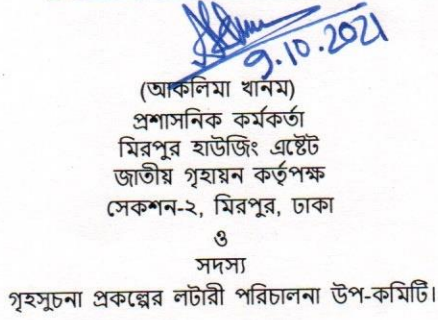 9.10.2021
(আকলিমা খানম)
প্রশাসনিক কর্মকর্তা
মিরপুর হাউজিং এষ্টেট
জাতীয় গৃহায়ন কর্তৃপক্ষ
সেকশন-২, মিরপুর, ঢাকা
ও
সদস্য
গৃহসুচনা প্রকল্পের লটারী পরিচালনা উপ-কমিটি।